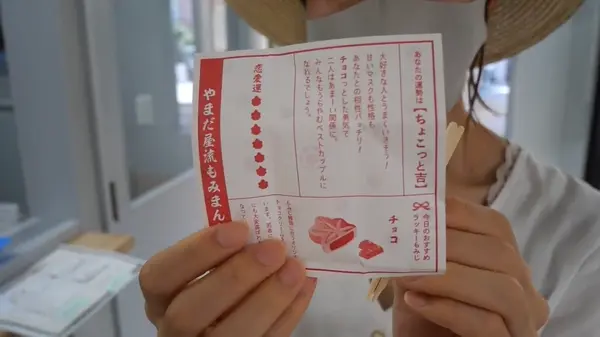 あなたの運勢は【ちょこっと吉】
大好きな人とうまくいきそう!
甘いマスクも性格も
あなたとの相性バッチリ!
チョコっとした勇気で
二人はあまーい関係に。
みんなもうらやむベストカップルに
なれるでしょう。
恋愛運
やまだ屋流もみまん
今日のおすすめ
ラッキーもみじ
チョコ